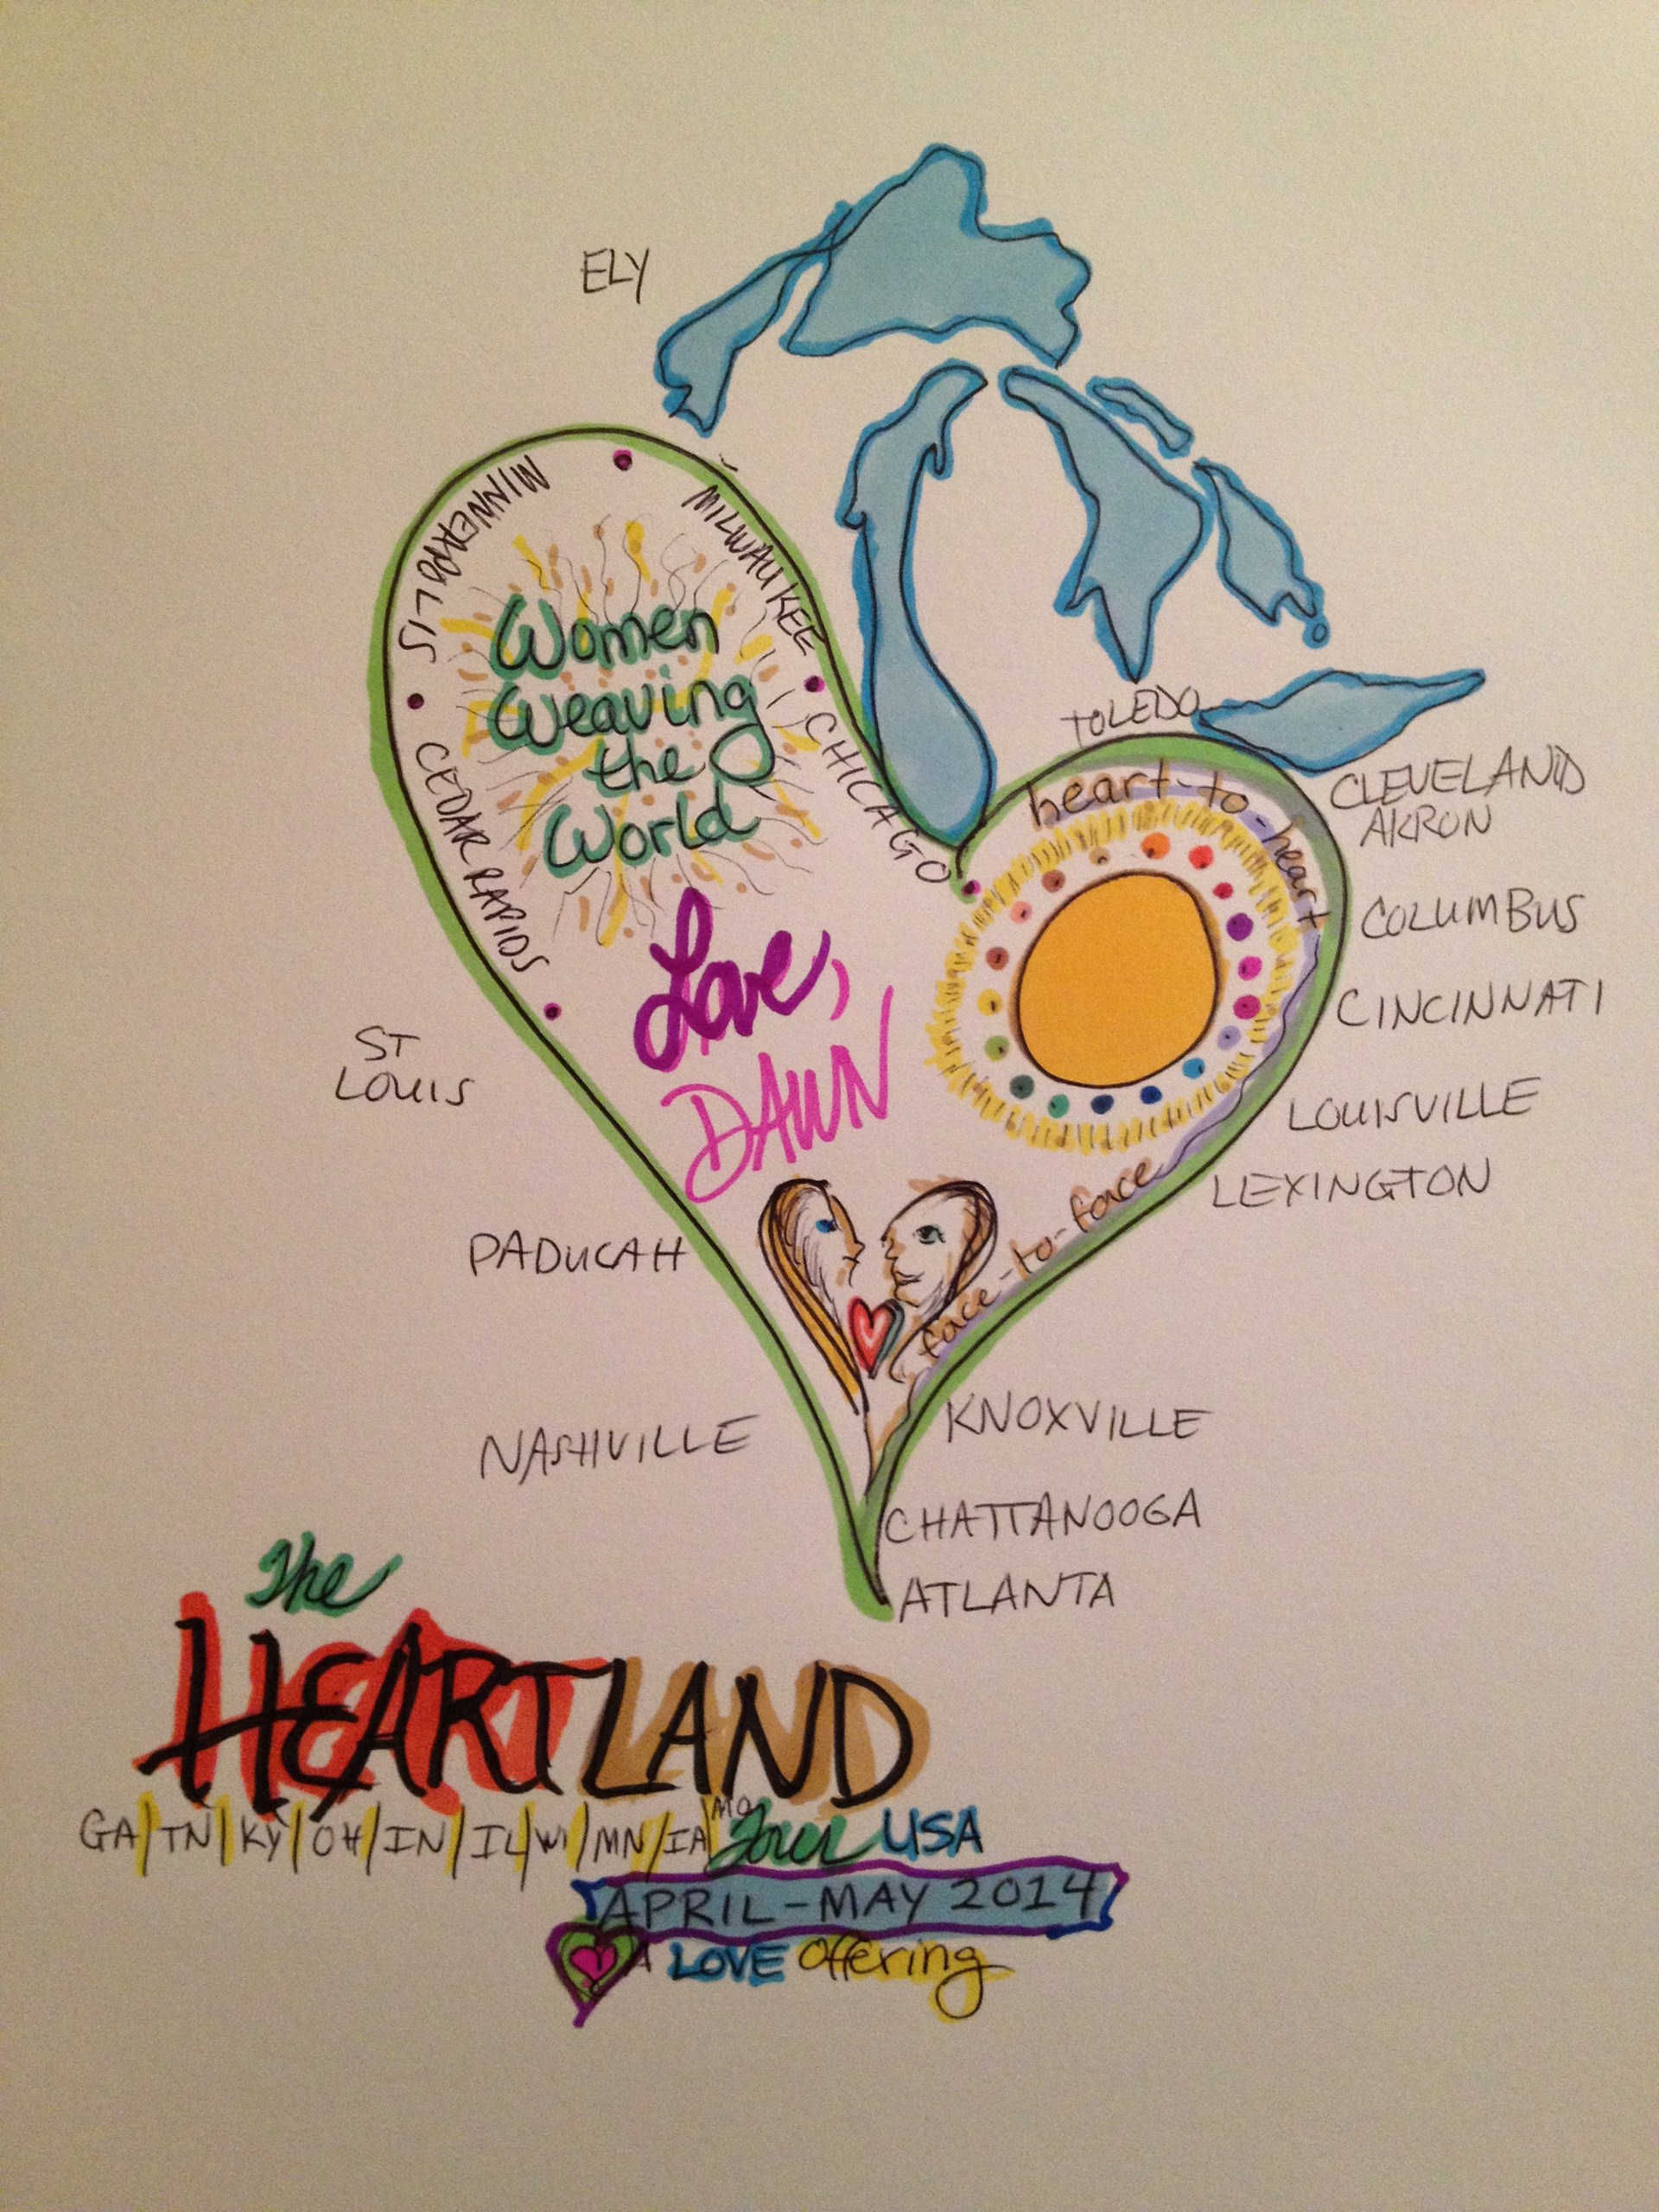 ELY
MINNEAPOLIS
MILWAUKEE
Women
Weaving
the
World
CEDAR RAPIDS
CHICAGO
TOLEDO
heart-to-heart
CLEVELAND
AKRON
COLUMBUS
CINCINNATI
LOUISVILLE
LEXINGTON
Love,
DAWN
ST
LOUIS
PADUCAH
face-to-face
NASHVILLE
KNOXVILLE
CHATTANOOGA
ATLANTA
The
HEARTLAND
GA/TN/KY/OH/IN/IL/WI/MN/IA/MO Tour USA
APRIL-MAY 2014
A LOVE Offering